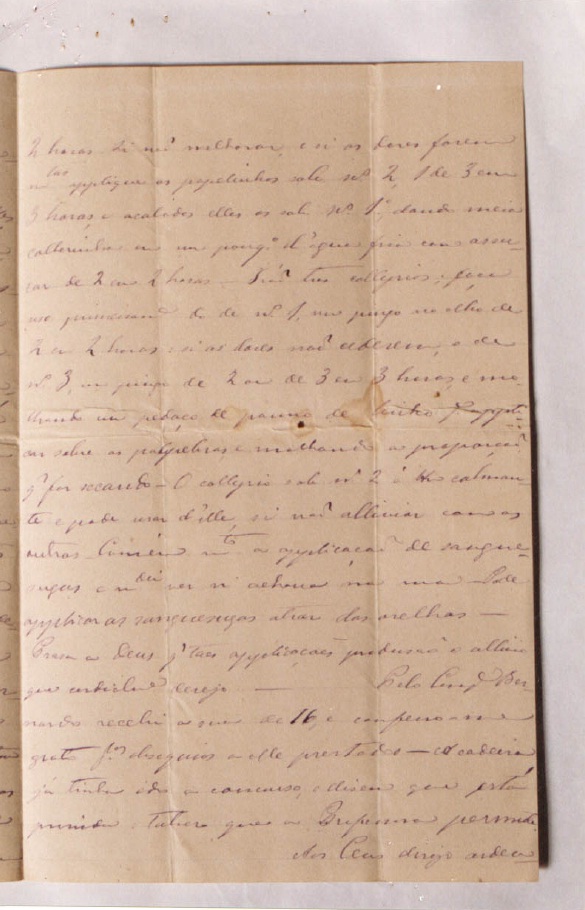 2 horas si naõ melhorar, e si as dores forem
mtas applique os papelinhos sob nº 2, 1 de 3 em
3 horas, e acabados elles os sob nº 1, dando meia
colherinha em um pouqº d'agua fria com assu-
car de 2 em 2 horas — Saõ tres collyrios; faça
uso primeiramte do de nº 1, um pingo no olho de
2 em 2 horas: si as dores naõ cederem, o de
nº 3, um pingo de 2 ou de 3 em 3 horas, e mo-
lhando um pedaço de panno de linho p appli-
car sobre as palpebras, e molhando a proporçaõ
q' for seccando — O collyrio sob nº 2 é calman-
te e pode usar d'elle, si naõ alliviar com os
outros. Convém mto a applicaçaõ de sangue-
sugas e ver si acharia — Pode
applicar as sanguesugas atraz das orelhas —
Praza a Deus q' taes applicações produsaõ o allivio
que cordialmte desejo — Pelo Ber-
nardo recebi a sua de 16, e
grato pos obsequios a elle prestados — A cadeira
já tinha ido a concurso, e disem que está
talvez que a Professora permute
Aos Ceus dirijo arden-